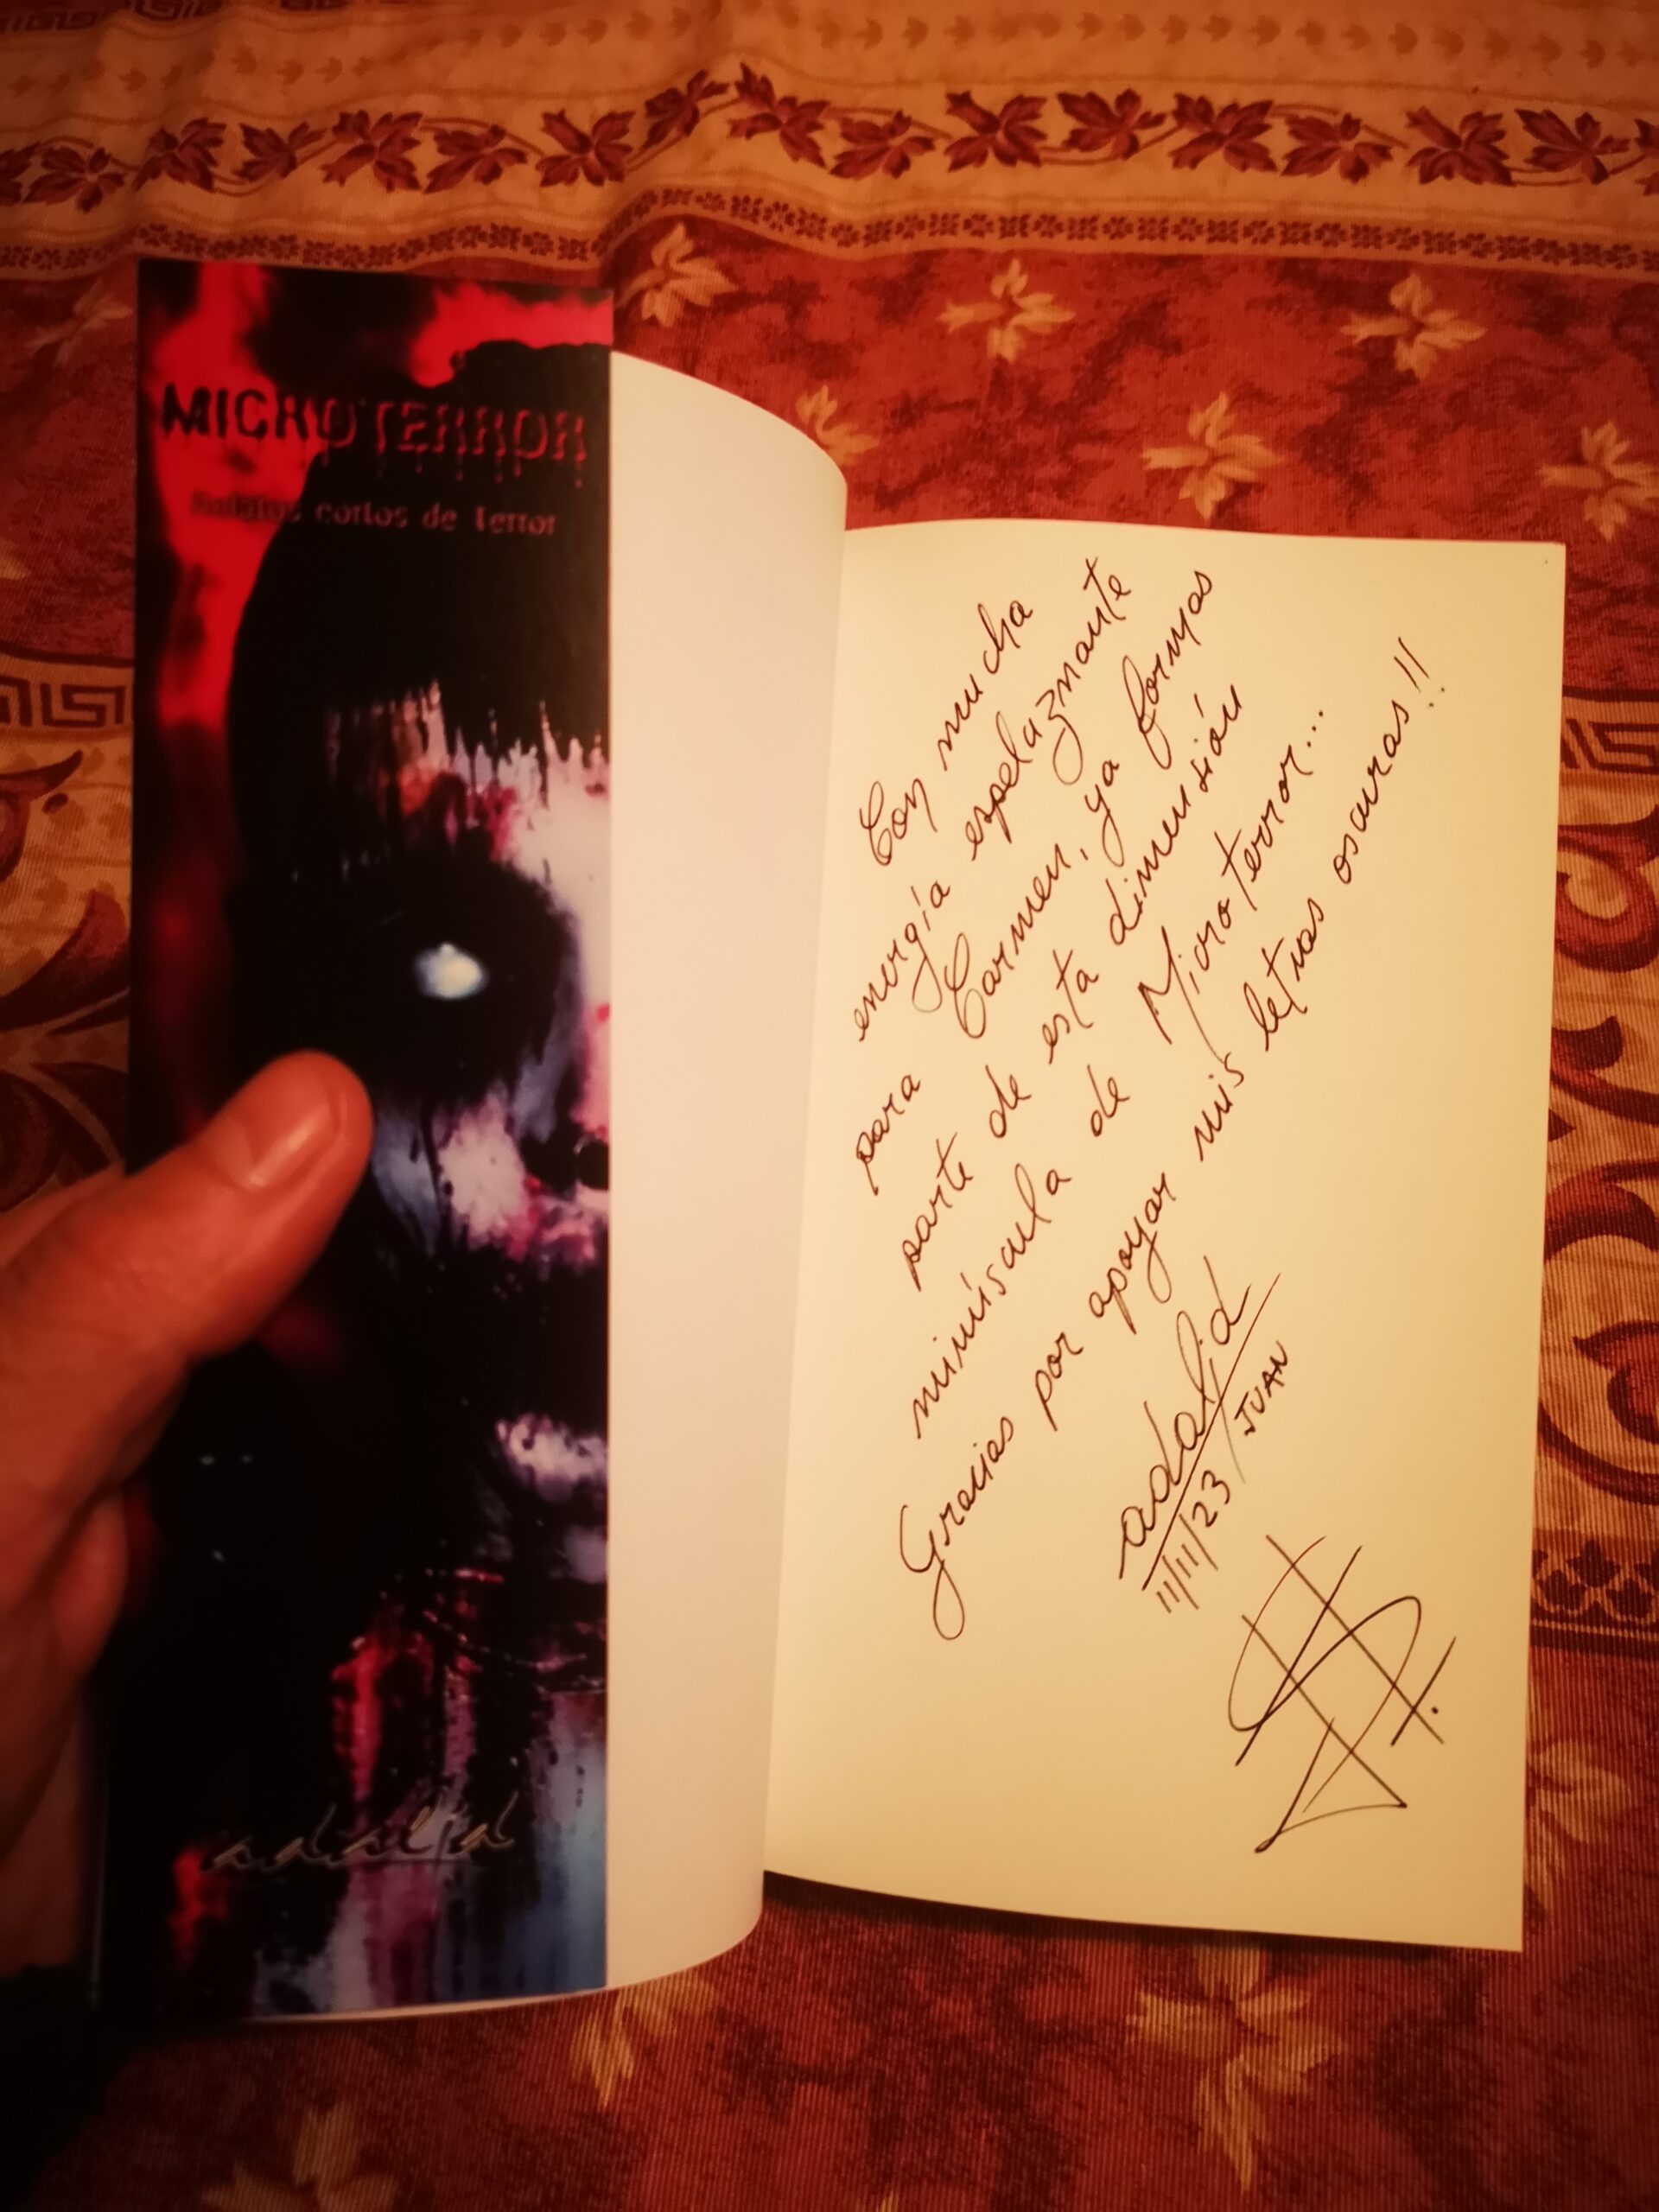 MICROTERROR
Relatos cortos de terror
adalid
Con mucha
energía espeluznante
para Carmen, ya formas
parte de esta dimensión
minúscula de Microterror...
Gracias por apoyar mis letras oscuras!!
adalid
JUAN
11/11/23